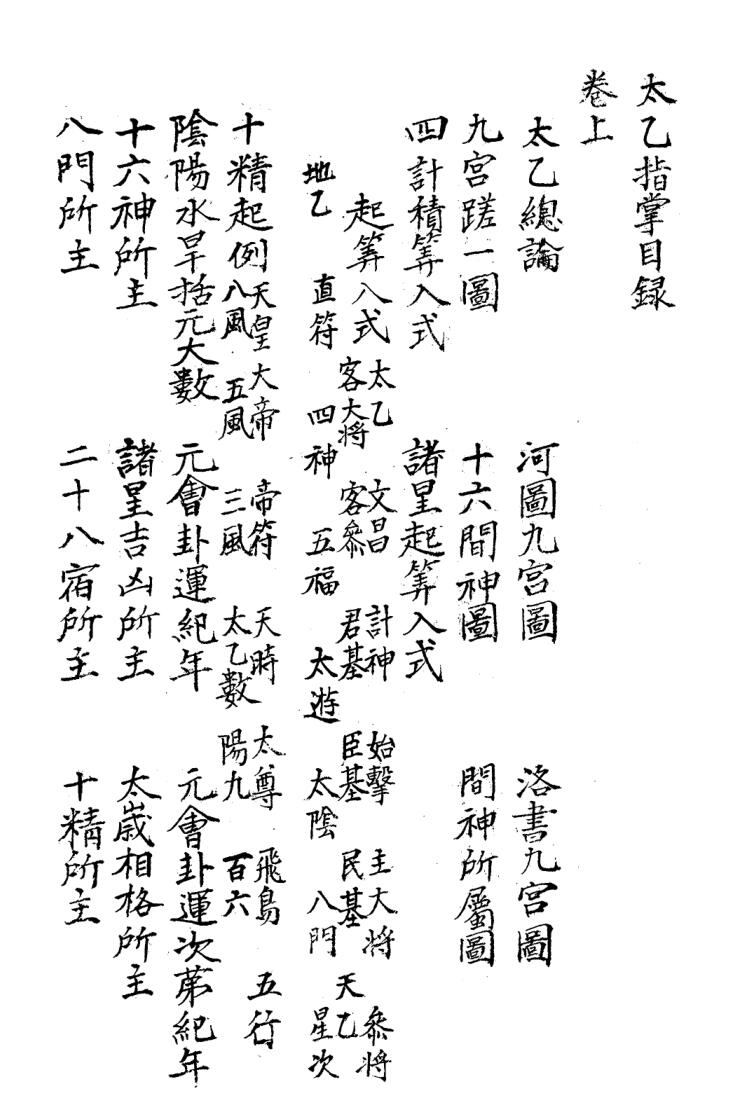 太乙指掌目録
卷上
太乙總論 河圖九宮圖 洛書九宮圖
九宮蹉一圖 十六間神圖 間神所屬圖
四計積筭入式 諸星起筭入式
起筭入式 太乙 文昌 計神 始擊 主大将 叅将
客大将 客叅 君基 臣基 民基 天乙
地乙 直符 四神 五福 太遊 太陰 八門 星次
十精起例 天皇大帝 帝符 天時 太尊 飛鳥 五行
八風 五風 三風 太乙數 陽九 百六
陰陽水旱括元大數 元會卦運紀年 元會卦運次苐紀年
十六神所主 諸星吉凶所主 太歲相格所主
八門所主 二十八宿所主 十精所主